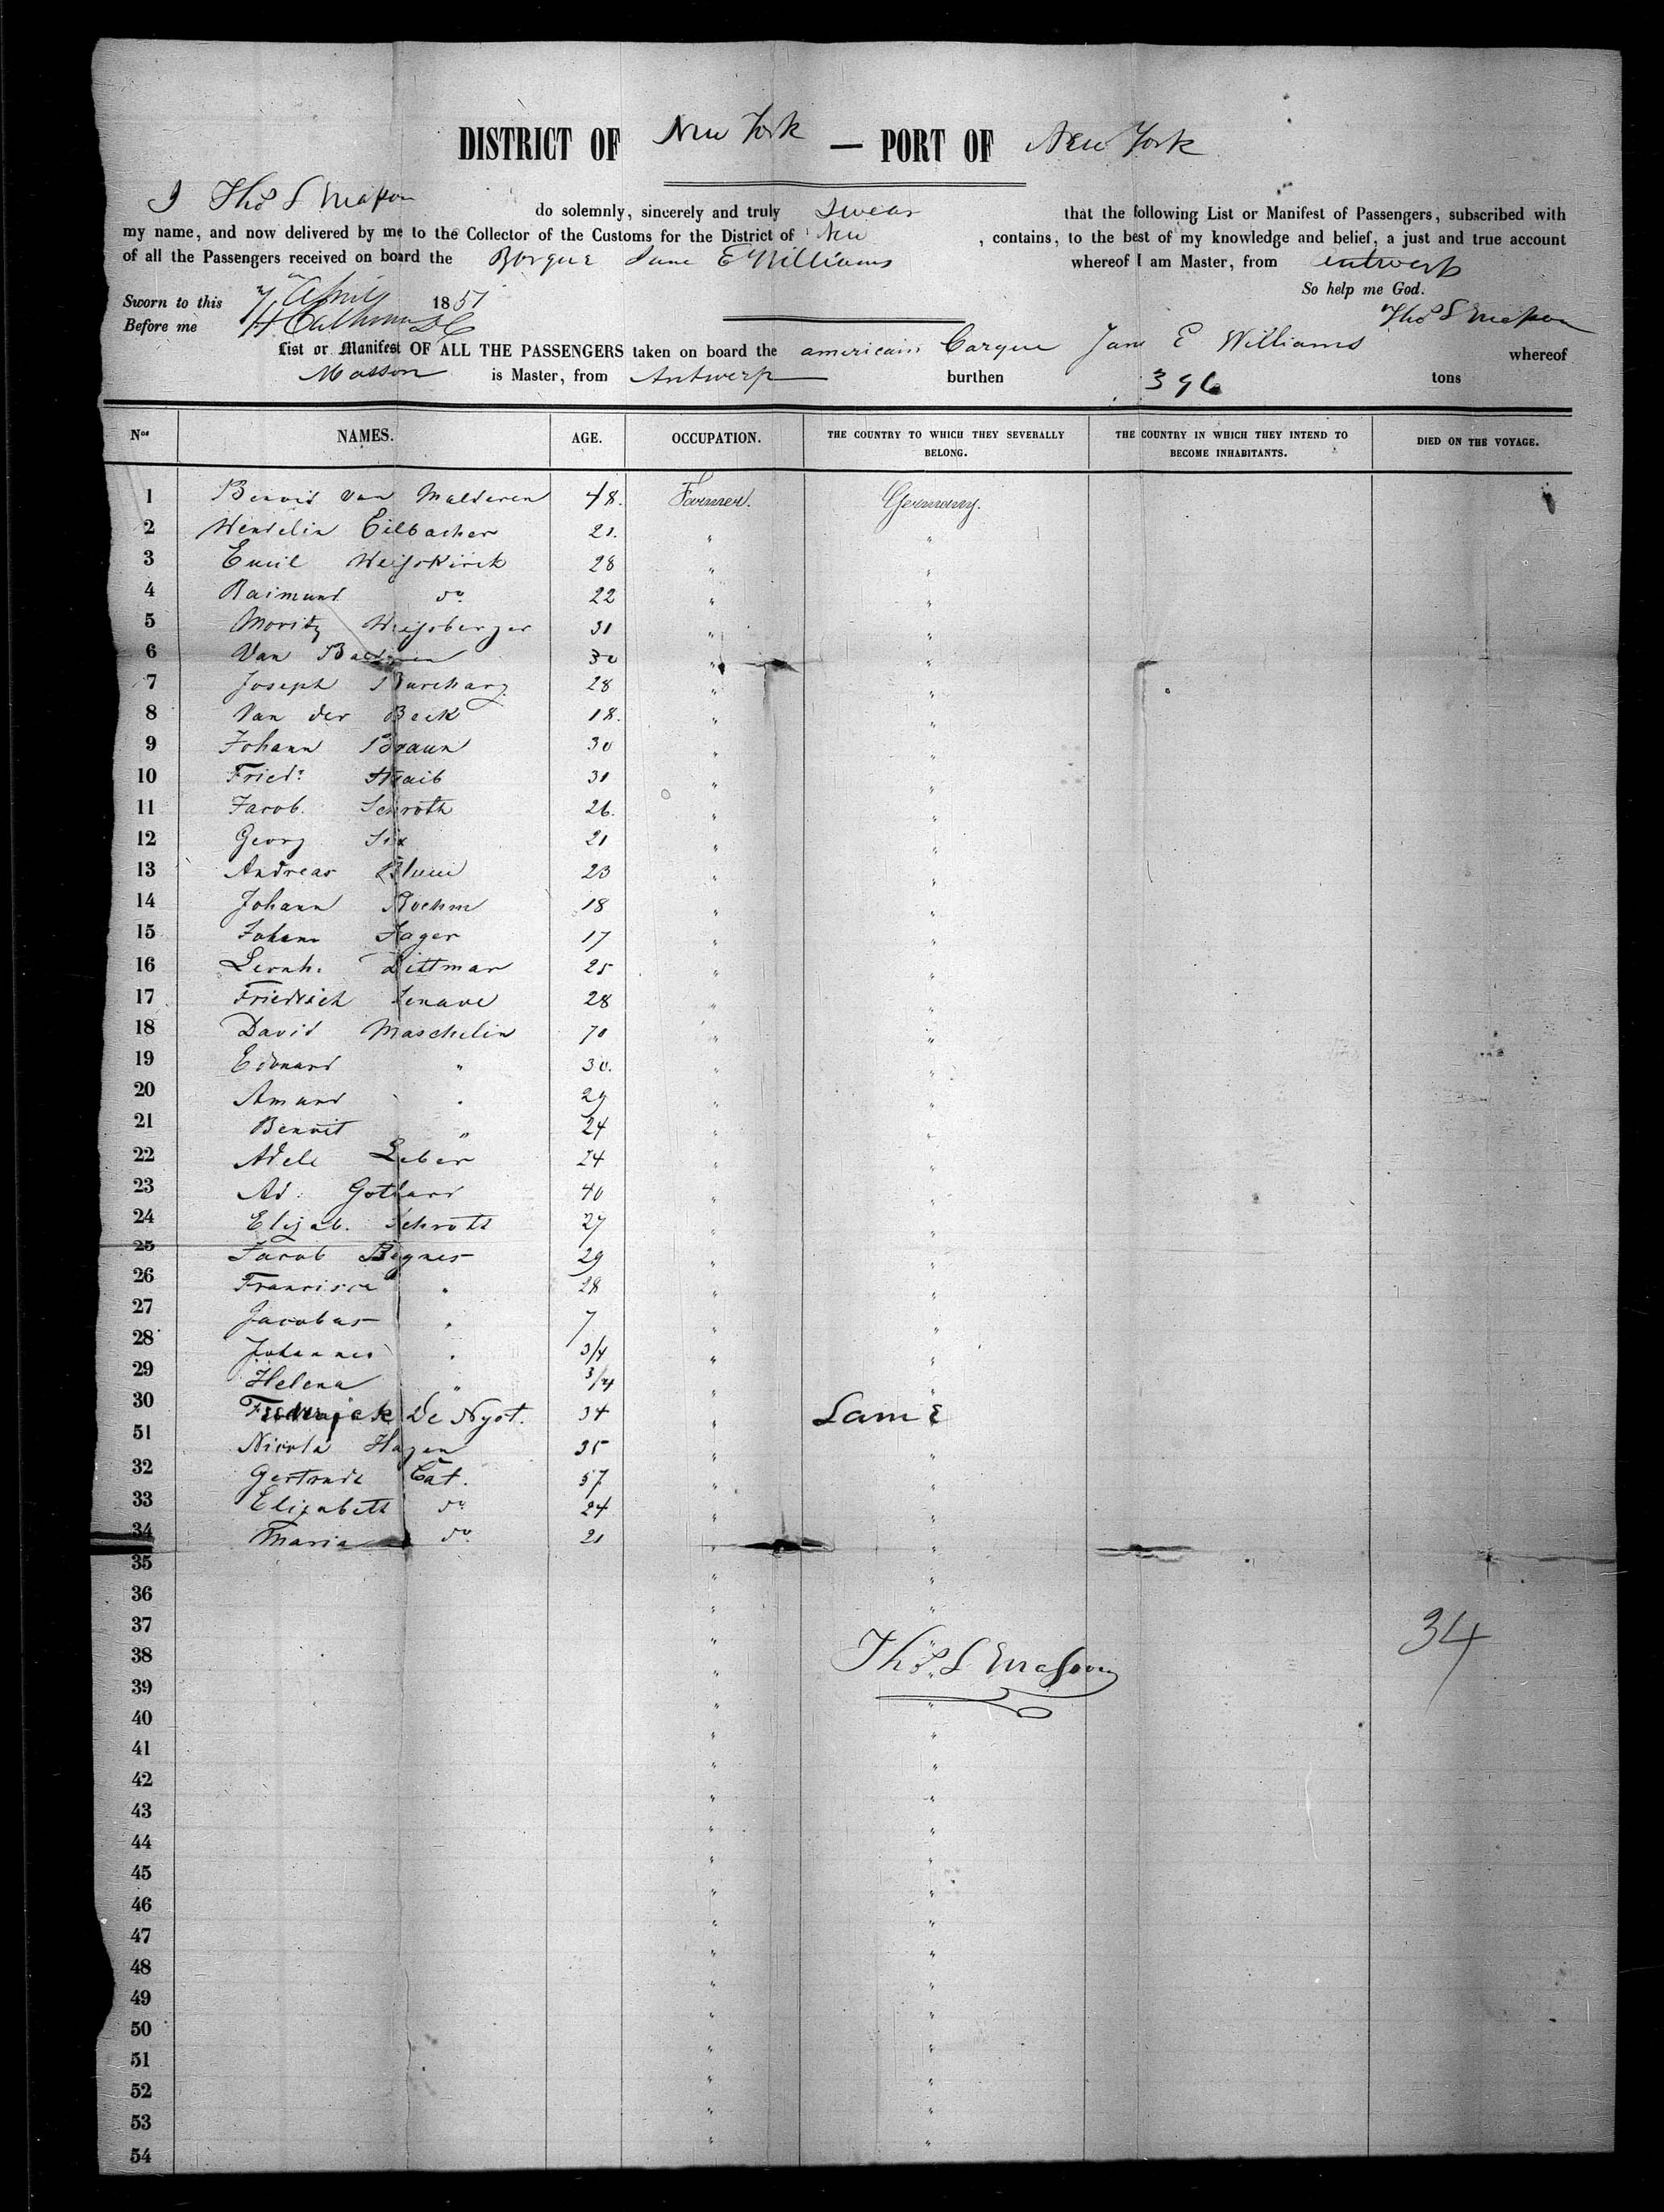 DISTRICT OF New York — PORT OF New York
I Thos S Masson do solemnly, sincerely and truly swear that the following List or Manifest of Passengers, subscribed with
my name, and now delivered by me to the Collector of the Customs for the District of New , contains, to the best of my knowledge and belief, a just and true account
of all the Passengers received on board the Barque Jane E Williams whereof I am Master, from Antwerp
So help me God.
Sworn to this 7 April 1851
Before me H Calhoun DC Thos S Masson
List or Manifest OF ALL THE PASSENGERS taken on board the americain barque Jane E Williams whereof
Masson is Master, from Antwerp burthen 396 tons
Nos NAMES. AGE. OCCUPATION. THE COUNTRY TO WHICH THEY SEVERALLY BELONG. THE COUNTRY IN WHICH THEY INTEND TO BECOME INHABITANTS. DIED ON THE VOYAGE.
1 Benoid van Malderen 48. Farmer. Germany.
2 Wendelin Eilbacher 21. " "
3 Emil Weisskirch 28 " "
4 Raimund do 22 " "
5 Moritz Weissberger 31 " "
6 Van 30 " "
7 Joseph 28 " "
8 Van der Beck 18. " "
9 Johann Braun 30 " "
10 Friedr 31 " "
11 Jacob Schroth 26. " "
12 Georg Six 21 " "
13 Andreas Blum 23 " "
14 Johann Boehm 18 " "
15 Johann Hager 17 " "
16 Dittmar 25 " "
17 Friedrich 28 " "
18 David Maschelin 70 " "
19 Edouard " 30. " "
20 Amand " 29 " "
21 Benoit " 24 " "
22 Adele Leber 24 " "
23 Ad: Gothard 40 " "
24 Elizab. Schroth 27 " "
25 Jacob 29 " "
26 Francisca " 28 " "
27 Jacobus " 7 " "
28 Johannes " 3/4 " "
29 Helena " 3/4 " "
30 Frederick De Nyst. 34 " Same
51 Nicola Hagen 35 " "
32 Gertrude Cat. 57 " "
33 Elizabeth do 24 " "
34 Maria do 21 " "
35 " "
36 " "
37 " " 34
38 " Thos S Masson
39 " "
40 " "
41 " "
42 " "
43 " "
44 " "
45 " "
46 " "
47 " "
48 " "
49 " "
50 " "
51 " "
52 " "
53 " "
54 " "